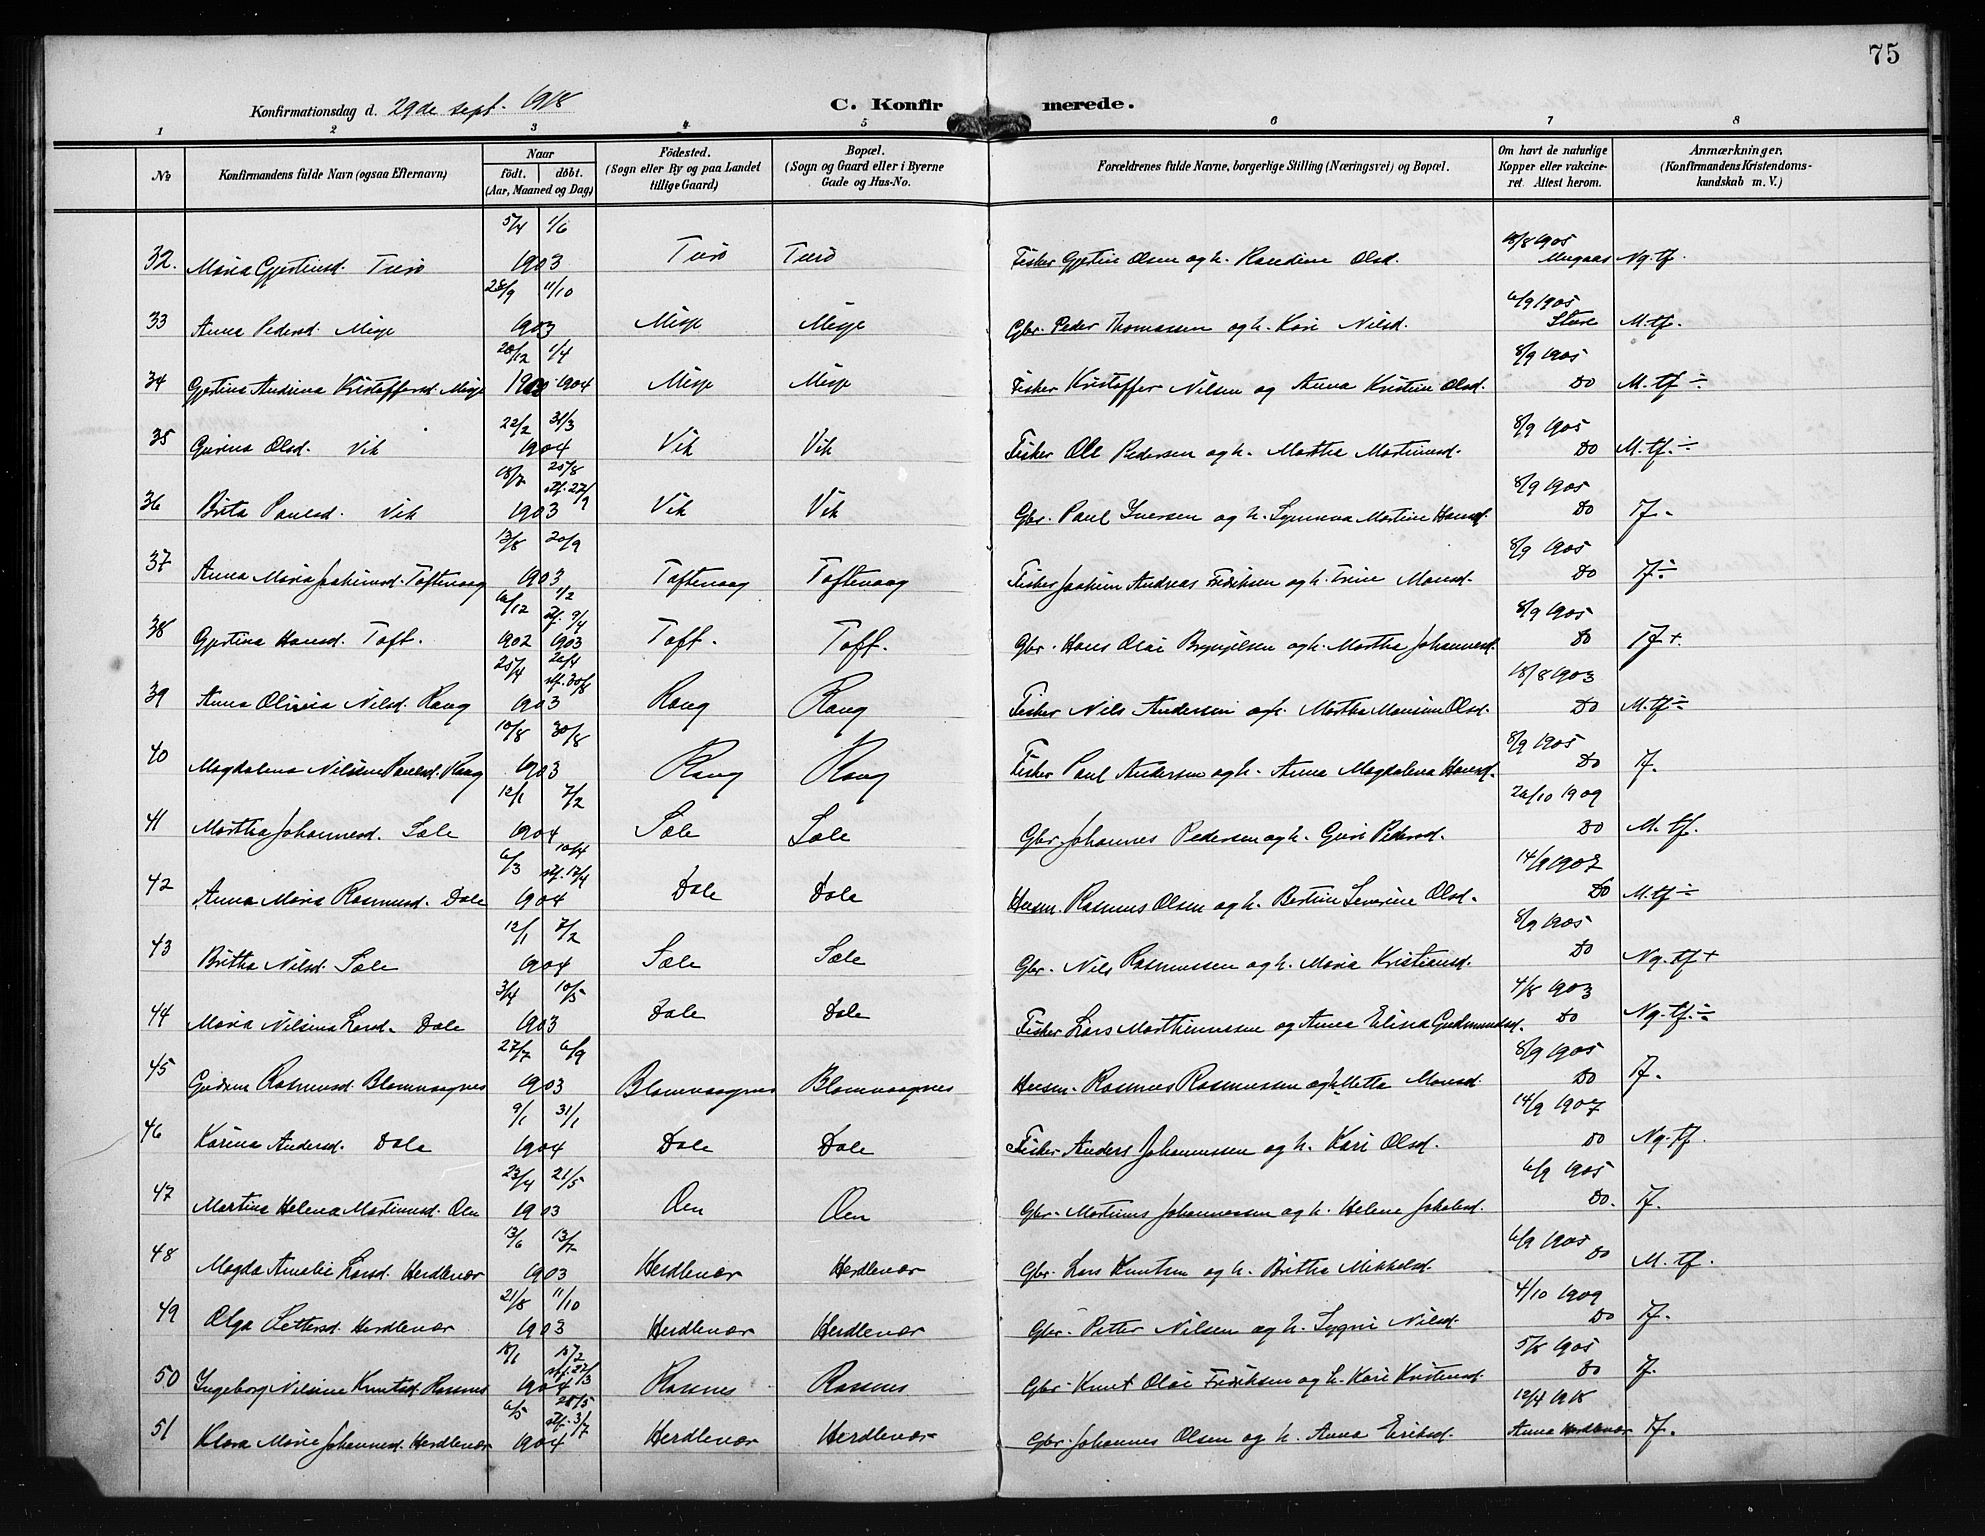 75
Konfirmationsdag d. 29de sept. 1918
C. Konfirmerede.
1 2 3 4 5 6 7 8
No Konfirmandens fulde Navn (ogsaa Efternavn) Naar födt. döbt. (Aar, Maaned og Dag) Födested. (Sogn eller By og paa Landet tillige Gaard) Bopæl. (Sogn og Gaard eller i Byerne Gade og Hus-No. Forældrenes fulde Navne, borgerlige Stilling (Næringsvei) og Bopæl. Om havt de naturlige Kopper eller vakcineret. Attest herom. Anmærkninger. (Konfirmandens Kristendomskundskab m. V.)
5/4 1/6
32. Maria Gjertinsd. Turö 1903 Turö Turö Fisker Gjertin Olsen og h. Karedine Olsd. 18/8 1905 Ng. tf.
28/9 11/10
33 Anna Pedersd. Misje 1903 Misje Misje Gbr. Peder Thomassen og h. Kari Nilsd. 6/9 1905 Sture M. tf.
20/12 1/4
34 Gjertina Andrina Kristoffersd. Misje 1904 Misje Misje Fisker Kristoffer Nilsen og Anna Kristine Olsd. 8/9 1905 Do M. tf ÷
22/2 31/3
35 Gurina Olsd. Vik 1904 Vik Vik Fisker Ole Pedersen og h. Martha Martinusd. 8/9 1905 Do M. tf. ÷
18/7 25/8 stf. 27/9
36 Brita Paulsd. Vik 1903 Vik Vik Gbr. Paul Iversen og h. Synneva Martine Hansd. 8/9 1905 Do Tf.
13/8 20/9
37 Anna Maria Joakimsd. Toftevaag 1903 Toftevaag Toftevaag Fisker Joakim Andreas Fredriksen og h. Trine Monsd. 8/9 1905 Do Tf ÷
6/12 1/2 stf. 9/4
38 Gjertina Hansd. Toft. 1902 1903 Toft. Toft. Gbr. Hans Olai Brynjelsen og h. Martha Johannesd. 8/9 1905 Do Tf +
25/4 26/4 stf. 30/8
39 Anna Olivia Nilsd. Rong 1903 Rong Rong Fisker Nils Andersen og h. Martha Monsine Olsd. 18/8 1903 Do M. tf ÷
10/8 30/8
40 Magdalena Nilsine Paulsd. Rong 1903 Rong Rong Fisker Paul Andersen og h. Anna Magdalena Hansd. 8/9 1905 Do Tf.
12/1 7/2
41 Martha Johannesd. Sæle 1904 Sæle Sæle Gbr. Johannes Pedersen og h. Guri Pedersd. 26/10 1909 Do M. tf.
6/3 10/4 stf. 17/4
42 Anna Maria Rasmusd. Dale 1904 Dale Dale Husm. Rasmus Olsen og h. Bertine Severine Olsd. 14/9 1907 Do M. tf ÷
12/1 7/2
43 Britha Nilsd. Sæle 1904 Sæle Sæle Gbr. Nils Rasmussen og h. Maria Kristiansd. 8/9 1905 Do Ng. tf +
3/4 10/5
44 Maria Nilsina Larsd. Dale 1903 Dale Dale Fisker Lars Marthinussen og Anna Elina Gudmundsd. 4/8 1903 Do Ng. tf. ÷
27/7 6/9
45 Gudrun Rasmusd. Blomvaagnes 1903 Blomvaagnes Blomvaagnes Husm. Rasmus Rasmussen og h. Mette Monsd. 8/9 1905 Do Tf.
9/1 31/1
46 Karina Andersd. Dale 1904 Dale Dale Fisker Anders Johannessen og h. Kari Olsd. 14/9 1907 Do Ng. tf.
23/4 21/5
47 Martina Helena Martinusd. Öen 1903 Öen Öen Gbr. Martinus Johannessen og h. Helene Jakobsd. 6/9 1905 Do. Tf.
13/6 13/7
48 Magda Amalie Larsd. Herdlevær 1903 Herdlevær Herdlevær Gbr. Lars Knutsen og h. Britha Mikkelsd. 6/9 1905 Do M. tf.
21/8 11/10
49 Olga Pettersd. Herdlevær 1903 Herdlevær Herdlevær Gbr. Petter Nilsen og h. Sygni Nilsd. 4/10 1909 Do Tf.
18/1 18/2 stf. 27/3
50 Ingeborg Nilsine Knutsd. Rasnes 1904 Rasnes Rasnes Gbr. Knut Olai Fredriksen og h. Kari Knutsd. 5/8 1905 Do Tf.
6/5 28/5 stf. 3/7
51 Klara Marie Johannesd. Herdlevær 1904 Herdlevær Herdlevær Gbr. Johannes Olsen og h. Anna Eriksd. 12/4 1918 Anna Herdlevær Tf.